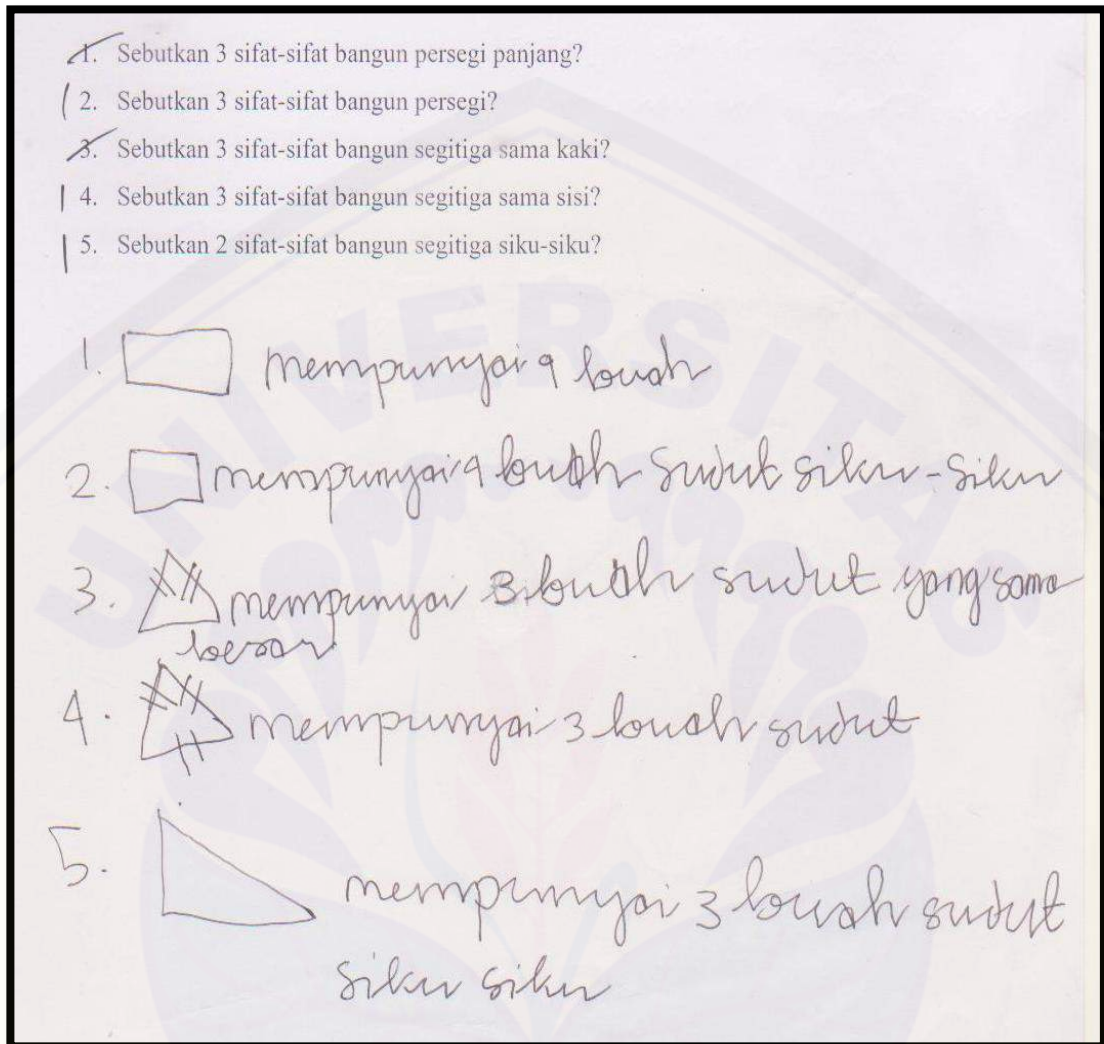 1. Sebutkan 3 sifat-sifat bangun persegi panjang?
2. Sebutkan 3 sifat-sifat bangun persegi?
3. Sebutkan 3 sifat-sifat bangun segitiga sama kaki?
4. Sebutkan 3 sifat-sifat bangun segitiga sama sisi?
5. Sebutkan 2 sifat-sifat bangun segitiga siku-siku?
UNIVERSITAS
1. mempunyai 4 buah
2. mempunyai 4 buah sudut siku-siku
3. mempunyai 3 buah sudut yang sama
besar
4. mempunyai 3 buah sudut
5. mempunyai 3 buah sudut
siku siku